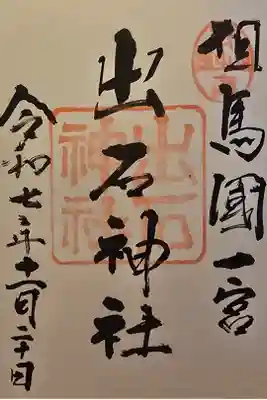 但馬國一宮
出石神社
出石神社
令和七年十一月二十日